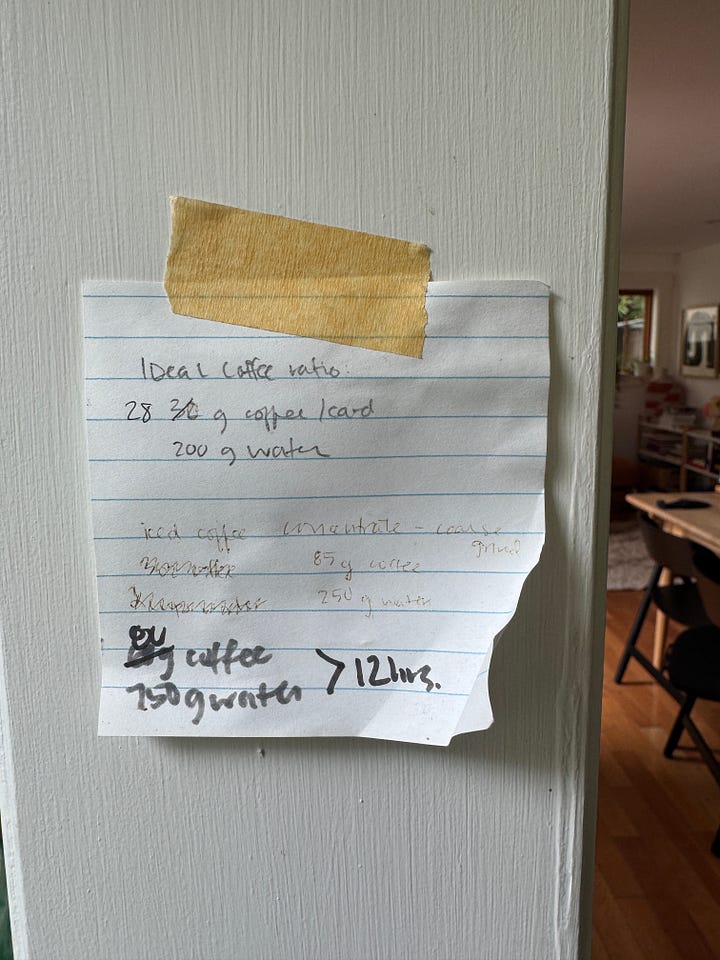 IDeal Coffee ratio:
28 g coffee /card
200 g water
iced coffee concentrate - coarse grind
85 g coffee
250 g water
g coffee
750 g water > 12 hrs.